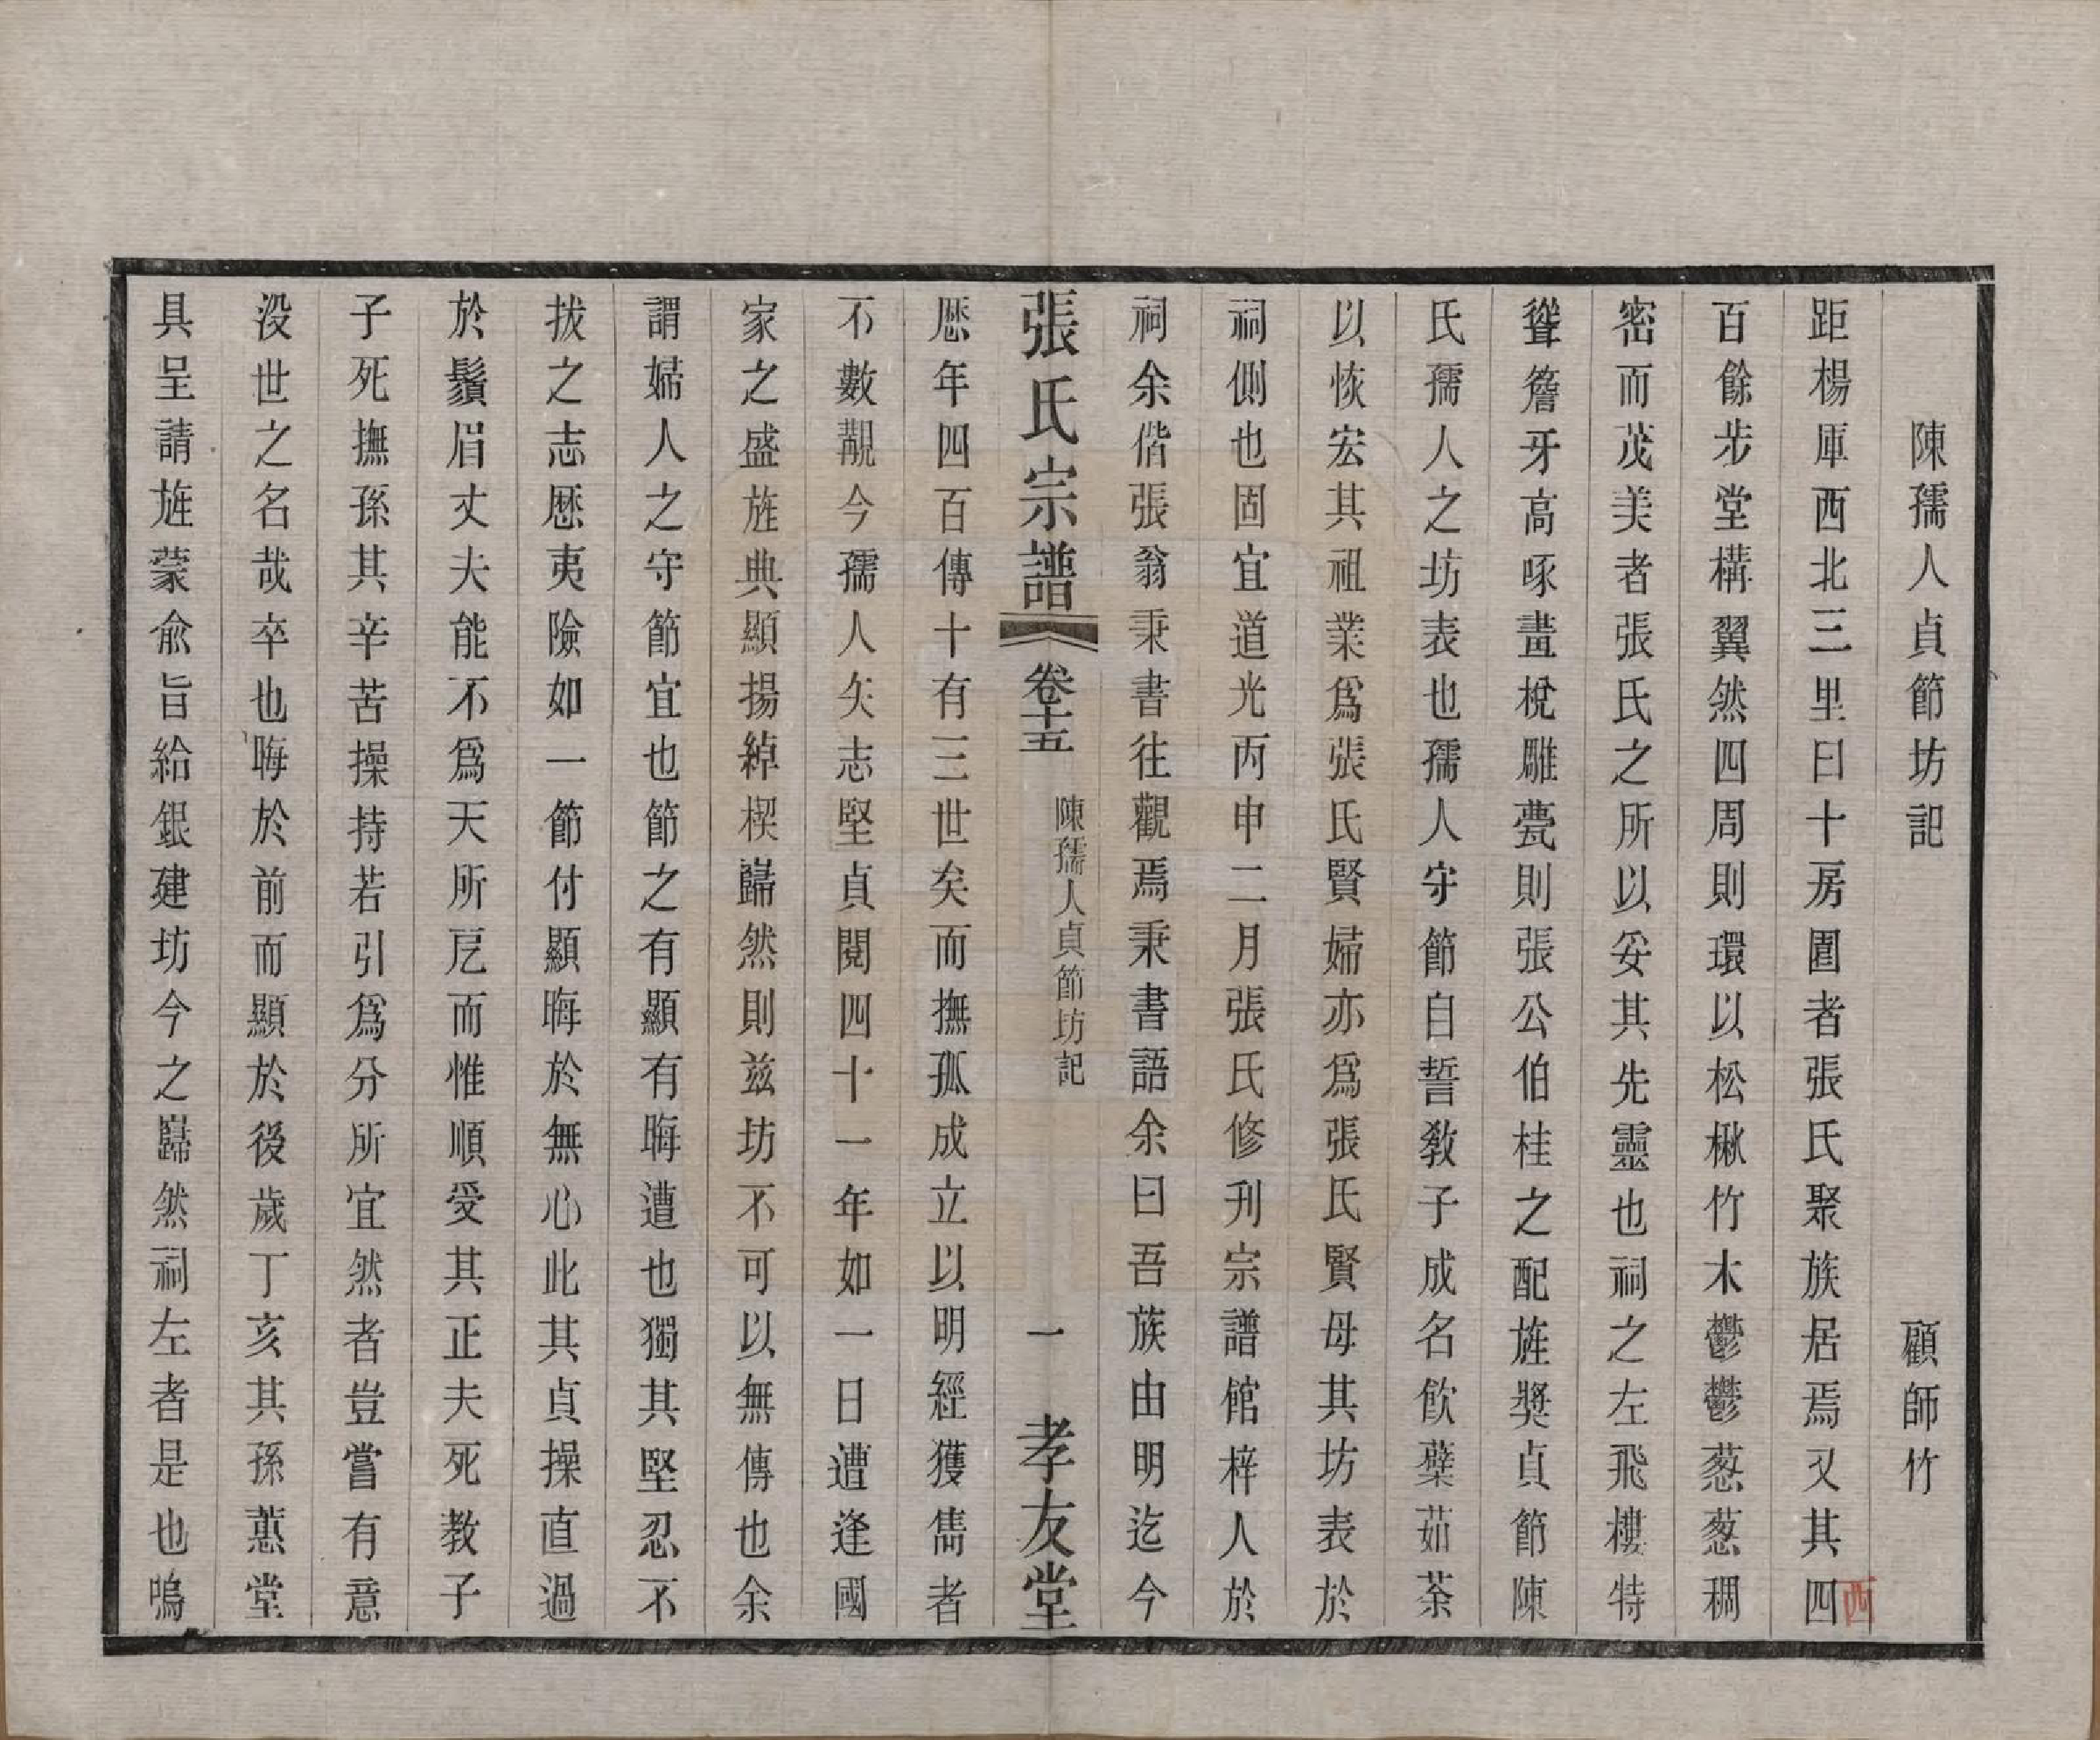 陳孺人貞節坊記　顧師竹
距楊庫西北三里曰十房圍者張氏聚族居焉又其四
西
百餘步堂構翼然四周則環以松楸竹木鬱鬱葱葱稠
密而茂美者張氏之所以妥其先靈也祠之左飛樓特
聳簷牙高啄畫梲雕甍則張公伯桂之配旌獎貞節陳
氏孺人之坊表也孺人守節自誓敎子成名飮蘗茹荼
以恢宏其祖業爲張氏賢婦亦爲張氏賢母其坊表於
祠側也固宜道光丙申二月張氏修刊宗譜館梓人於
祠余偕張翁秉書往觀焉秉書語余曰吾族由明迄今
張氏宗譜　卷十五　陳孺人貞節坊記　一　孝友堂
歷年四百傳十有三世矣而撫孤成立以明經獲雋者
不數覯今孺人矢志堅貞閱四十一年如一日遭逢國
家之盛旌典顯揚綽楔巋然則兹坊不可以無傳也余
謂婦人之守節宜也節之有顯有晦遭也獨其堅忍不
拔之志歷夷險如一節付顯晦於無心此其貞操直過
於鬚眉丈夫能不爲天所戹而惟順受其正夫死敎子
子死撫孫其辛苦操持若引爲分所宜然者豈嘗有意
沒世之名哉卒也晦於前而顯於後歲丁亥其孫蕙堂
具呈請旌蒙兪旨給銀建坊今之巋然祠左者是也嗚